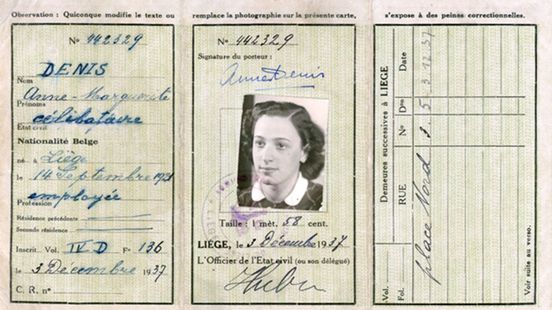 Observation : Quiconque modifie le texte ou remplace la photographie sur la présente carte, s'expose à des peines correctionnelles.
No 442329
DENIS
Nom
Anne-Marguerite
Prénoms
célibataire
Etat civil
Nationalité Belge
né à Liège
le 14 Septembre
employée
Profession
Résidence précédente
Seconde résidence
Inscrit. Vol. IV D Fo 136
le 3 Décembre 1937
C. R. no
No 442329
Signature du porteur :
Anne Denis
Taille : 1 mèt. 58 cent.
LIÉGE, le 3 Décembre 1937
L'Officier de l'Etat civil (ou son délégué)
Demeures successives à LIEGE
Date 3 12 37
Don 5
No
RUE place Nord
Vol.
Fol.
Voir suite au verso.